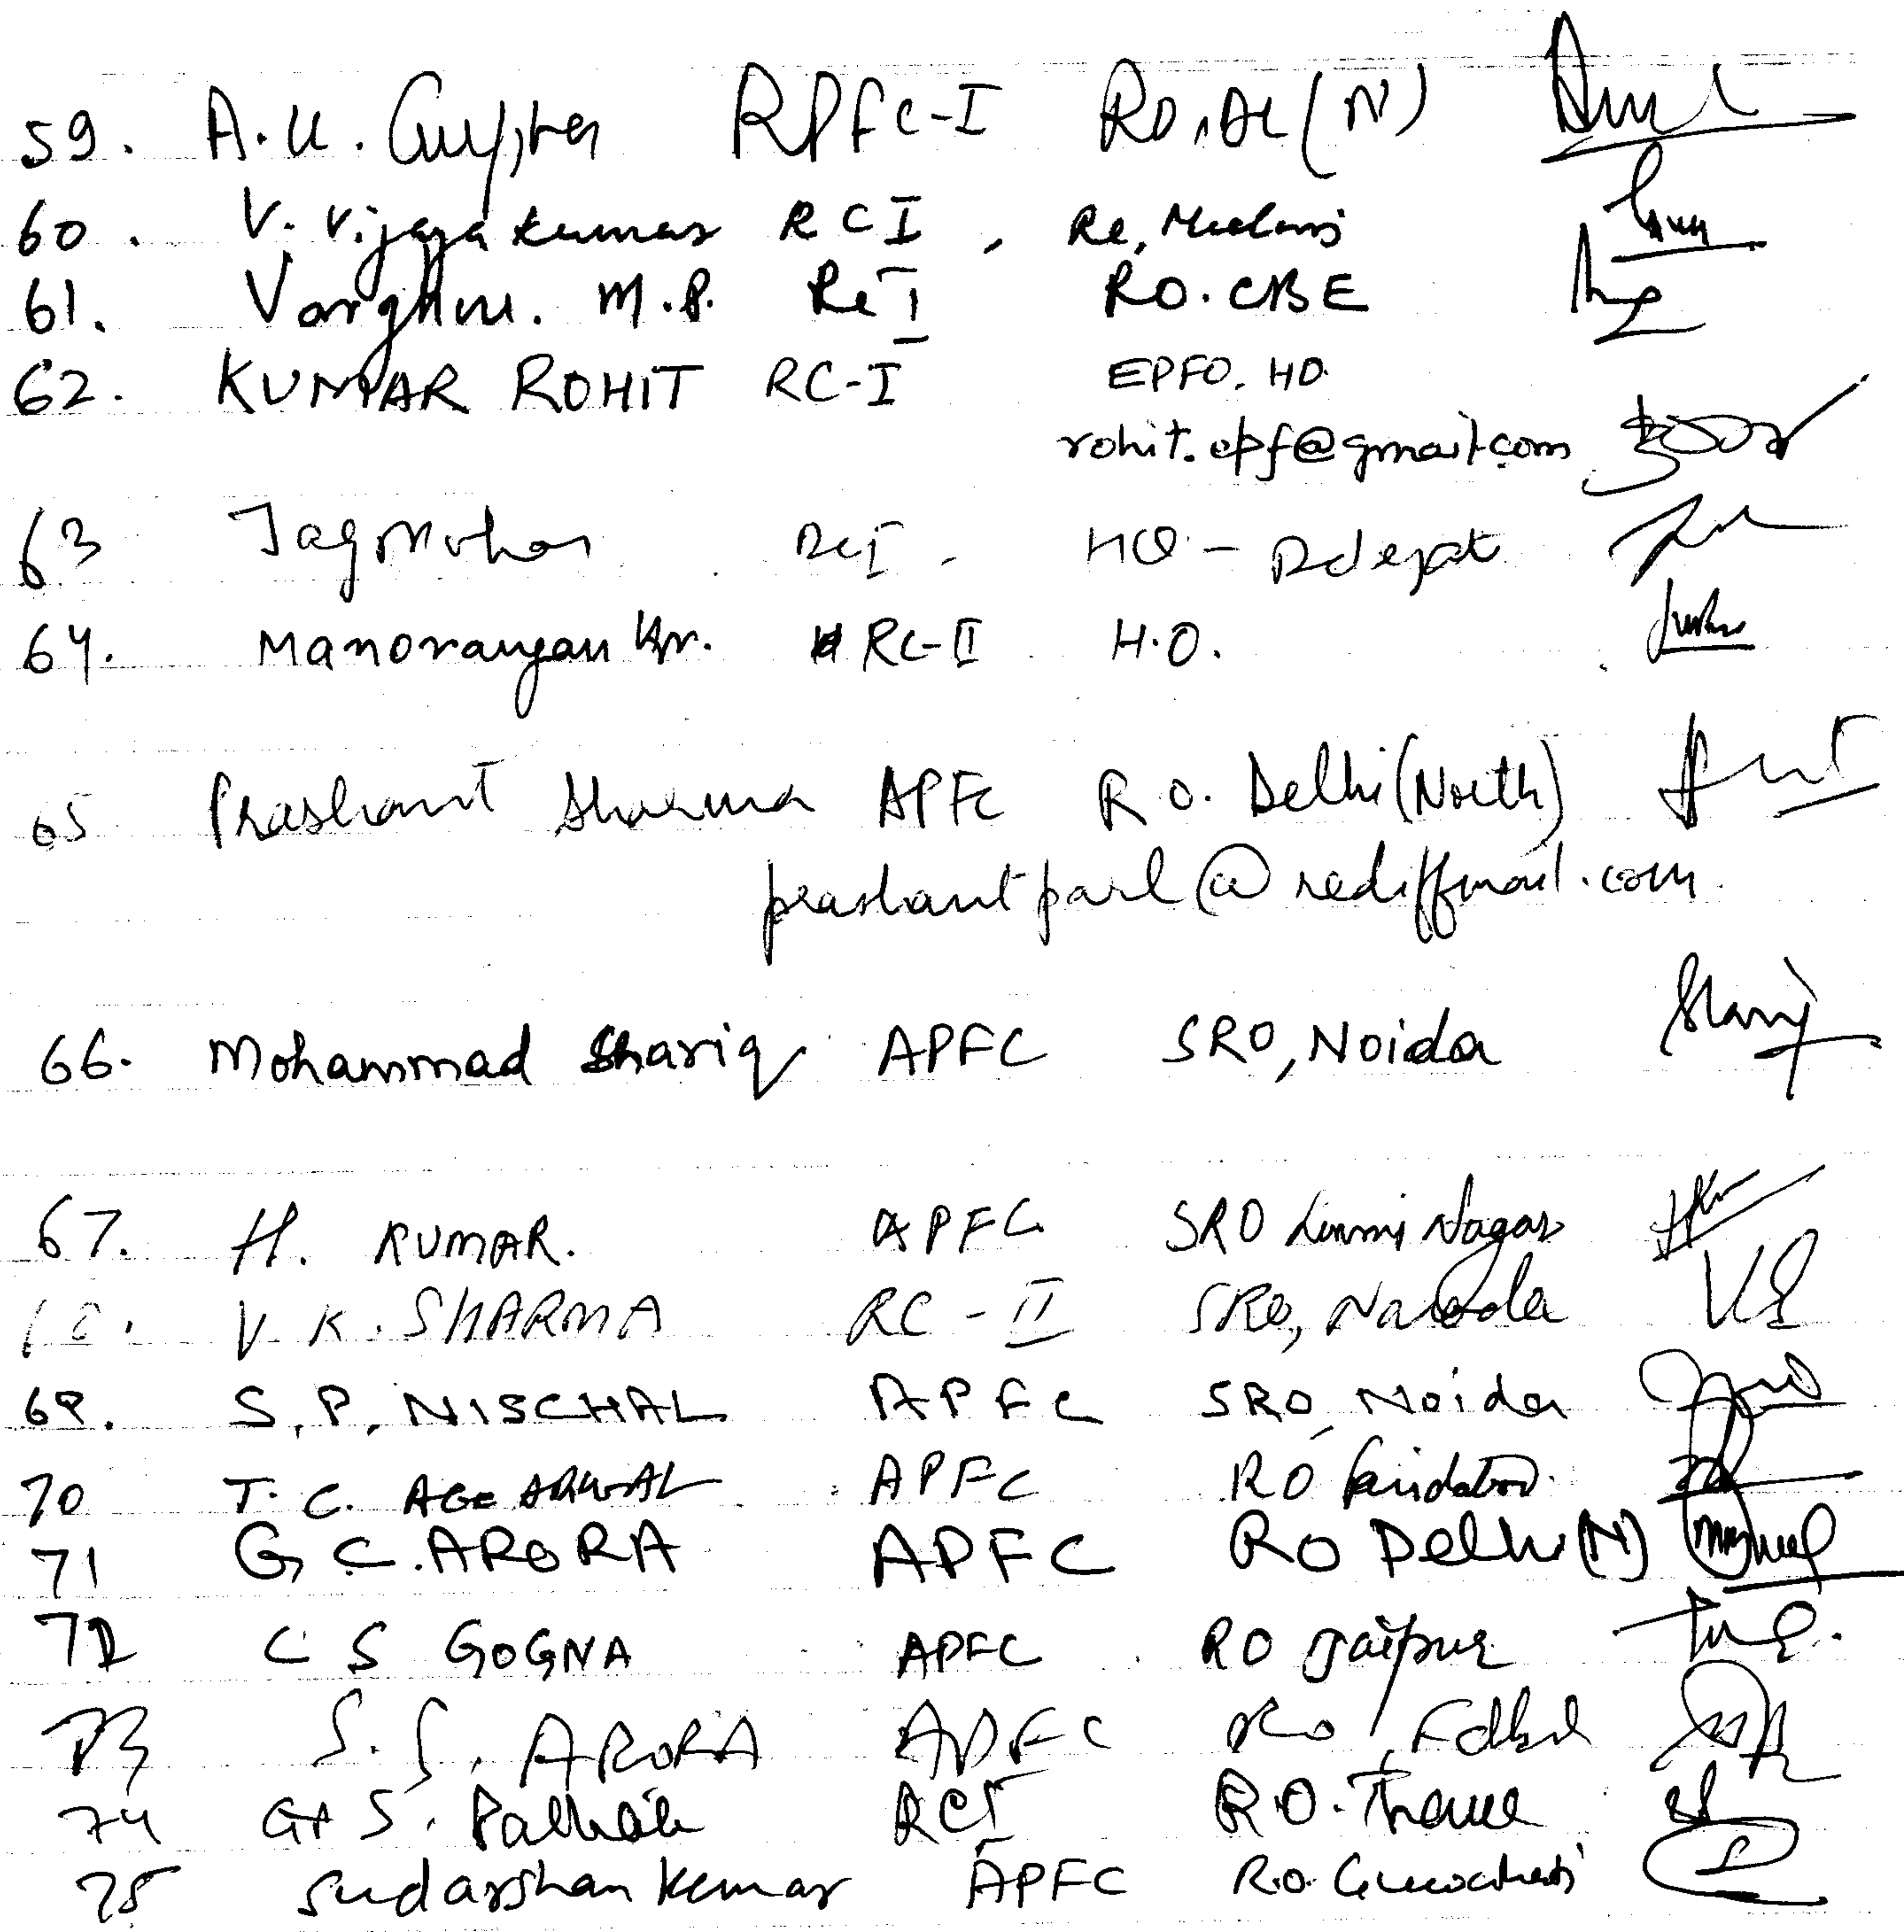 59. A.K. Gupta RPFC-I RO, DL (N)
60. V. Vijaya kumar RC I, RO,
61. Varghese. M.P. RC I RO. CBE
62. KUMAR ROHIT RC-I EPFO, HO
rohit.epf@gmail.com
63 Jagmohan RCI - HO -
64. Manoranjan Kr. RC-II H.O.
65 Prashant Sharma APFC R.O. Delhi (North)
prashantparl@rediffmail.com
66. Mohammad Shariq APFC SRO, Noida
67. H. KUMAR. APFC SRO Laxmi Nagar
68. V.K. SHARMA RC-II SRO, Naroda
69. S.P. NISCHAL APFC SRO, Noida
70 T.C. AGGARWAL APFC RO Faridabad
71 G.C. ARORA APFC RO Delhi (N)
72 C S GOGNA APFC RO Jaipur
73 S.S. ARORA APFC RO, Fdbd
74 G S. Pathak RCI R.O. Thane
75 Sudarshan Kumar APFC R.O. Guwahati